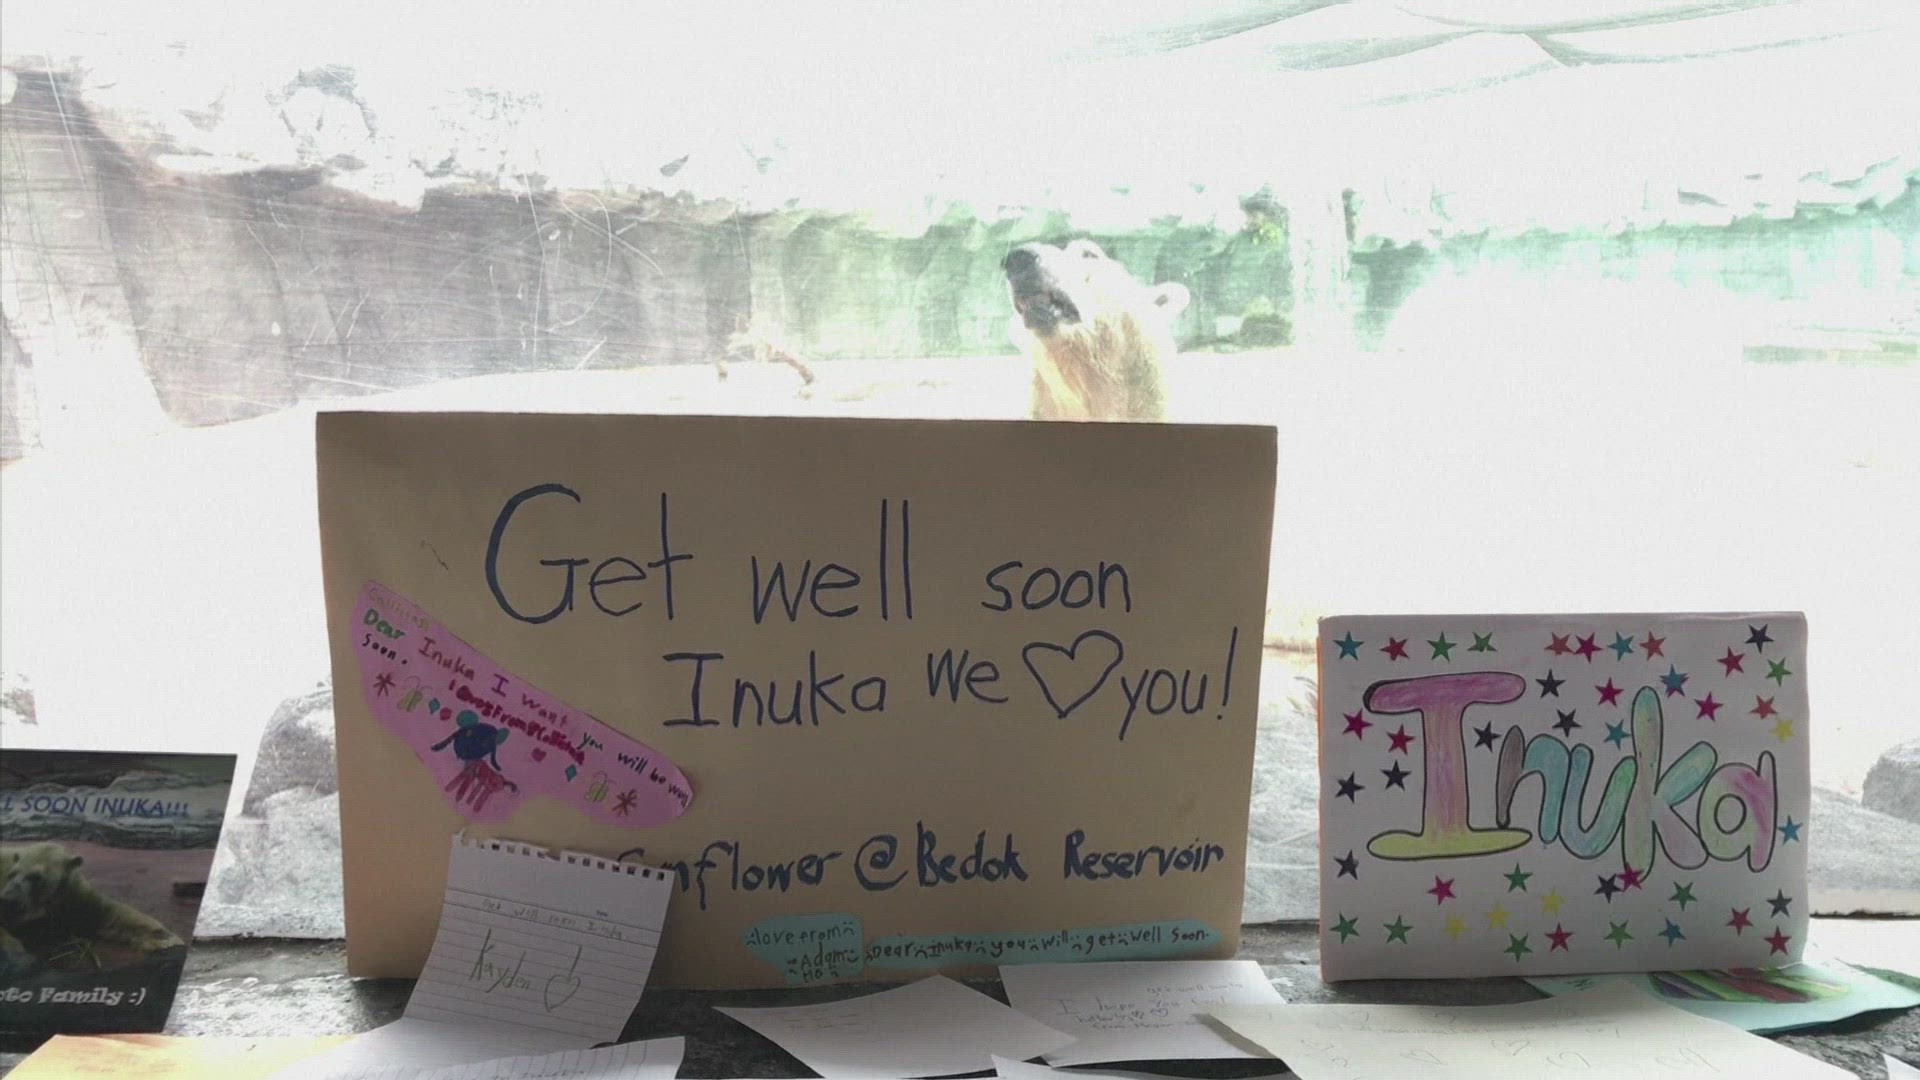 Get well soon
Inuka we you!
Dear Inuka I want you will be well
soon.
Sunflower @ Bedok Reservoir
love from
Adam
Dear Inuka you will get well soon.
Get well soon Inuka.
Kayden
Inuka
L SOON INUKA!!!
oto Family :)
get well
I hope you